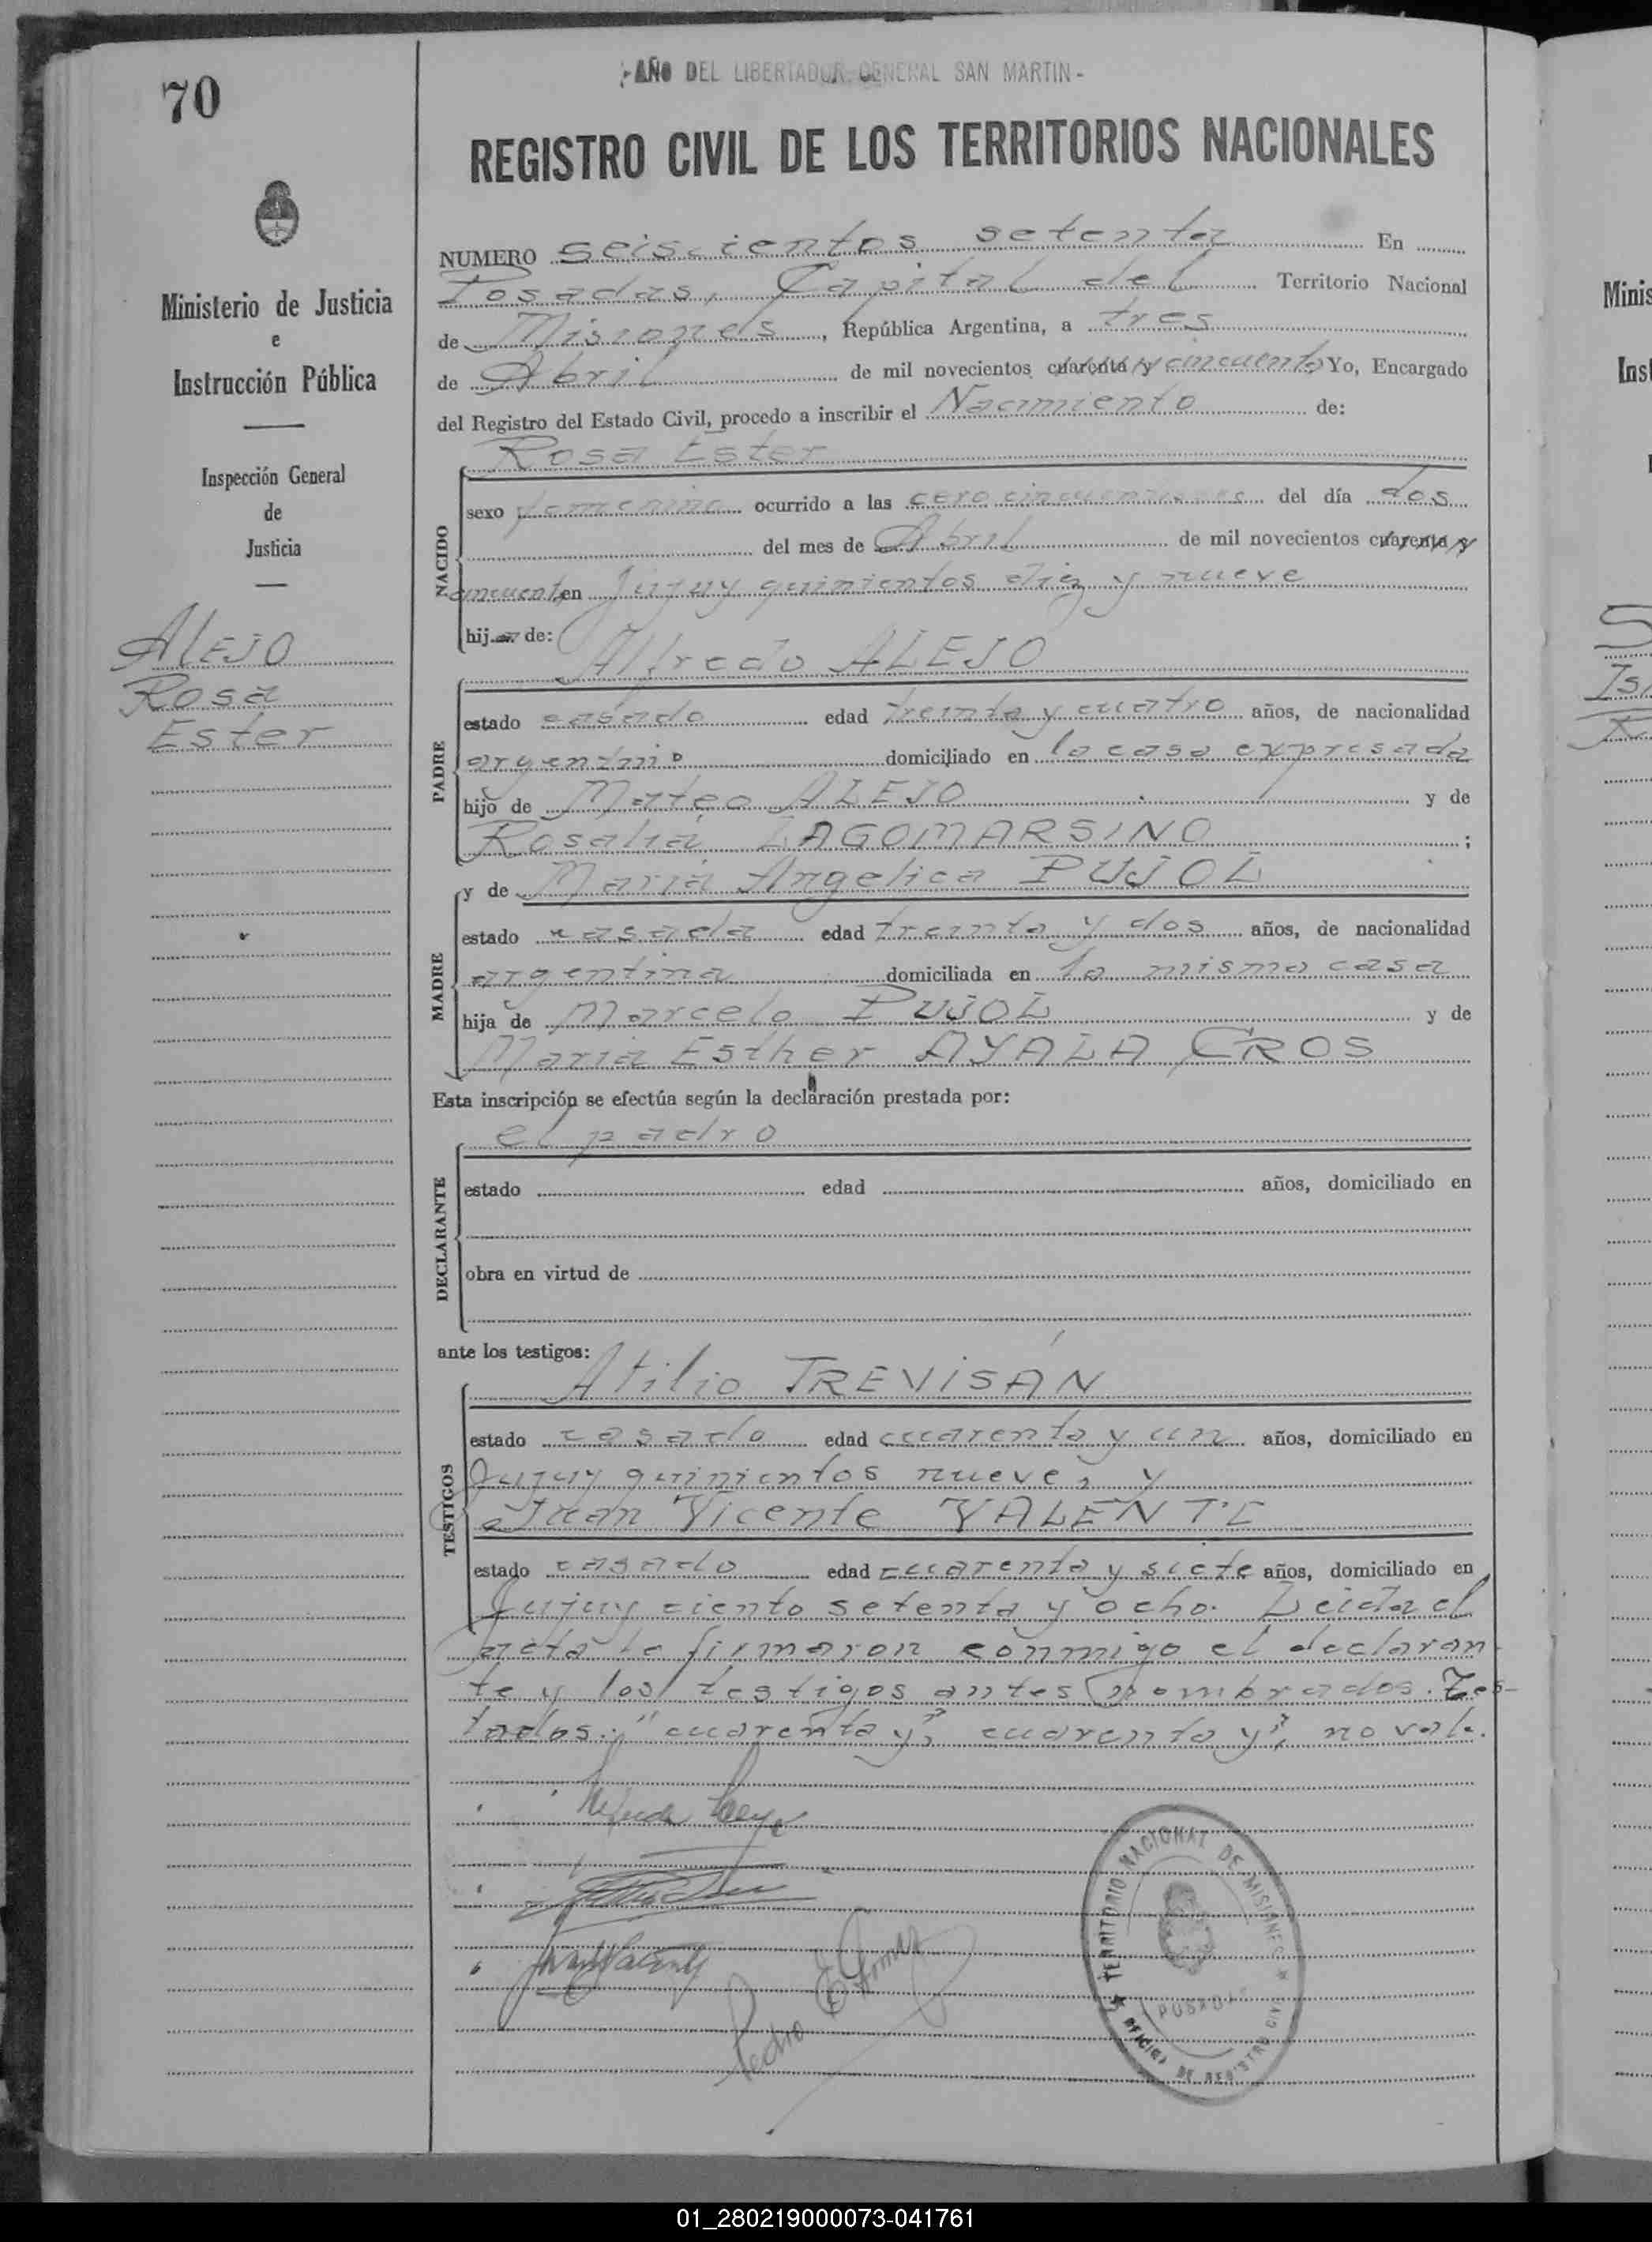 70
-AÑO DEL LIBERTADOR GENERAL SAN MARTIN-
REGISTRO CIVIL DE LOS TERRITORIOS NACIONALES
Ministerio de Justicia
e
Instrucción Pública
Inspección General
de
Justicia
ALEJO
Rosa
Ester
NUMERO seiscientos setenta En
Posadas, Capital del Territorio Nacional
de Misiones, República Argentina, a tres
de Abril de mil novecientos cuarenta y cincuenta Yo, Encargado
del Registro del Estado Civil, procedo a inscribir el Nacimiento de:
Rosa Ester
NACIDO
sexo femenino ocurrido a las cero cincuenta del día dos
del mes de Abril de mil novecientos cuarenta y
cincuenta en Jujuy quinientos diez y nueve
hija de:
Alfredo ALEJO
PADRE
estado casado edad treinta y cuatro años, de nacionalidad
argentino domiciliado en la casa expresada
hijo de Mateo ALEJO y de
Rosalia LAGOMARSINO ;
y de Maria Angelica PUJOL
MADRE
estado casada edad treinta y dos años, de nacionalidad
argentina domiciliada en la misma casa
hija de Marcelo PUJOL y de
Maria Esther AYALA CROS
Esta inscripción se efectúa según la declaración prestada por:
el padre
DECLARANTE
estado edad años, domiciliado en
obra en virtud de
ante los testigos:
Atilio TREVISAN
TESTIGOS
estado casado edad cuarenta y un años, domiciliado en
Jujuy quinientos nueve, y
Juan Vicente VALENTE
estado casado edad cuarenta y siete años, domiciliado en
Jujuy ciento setenta y ocho. Leida el
acta la firmaron conmigo el declaran-
te y los testigos antes nombrados. Tes-
tados: "cuarenta y", cuarenta y", no vale.
Pedro E Gomez
TERRITORIO NACIONAL DE MISIONES
POSADAS
OFICINA DE REGISTRO CIVIL
Minis
Inst
01_280219000073-041761